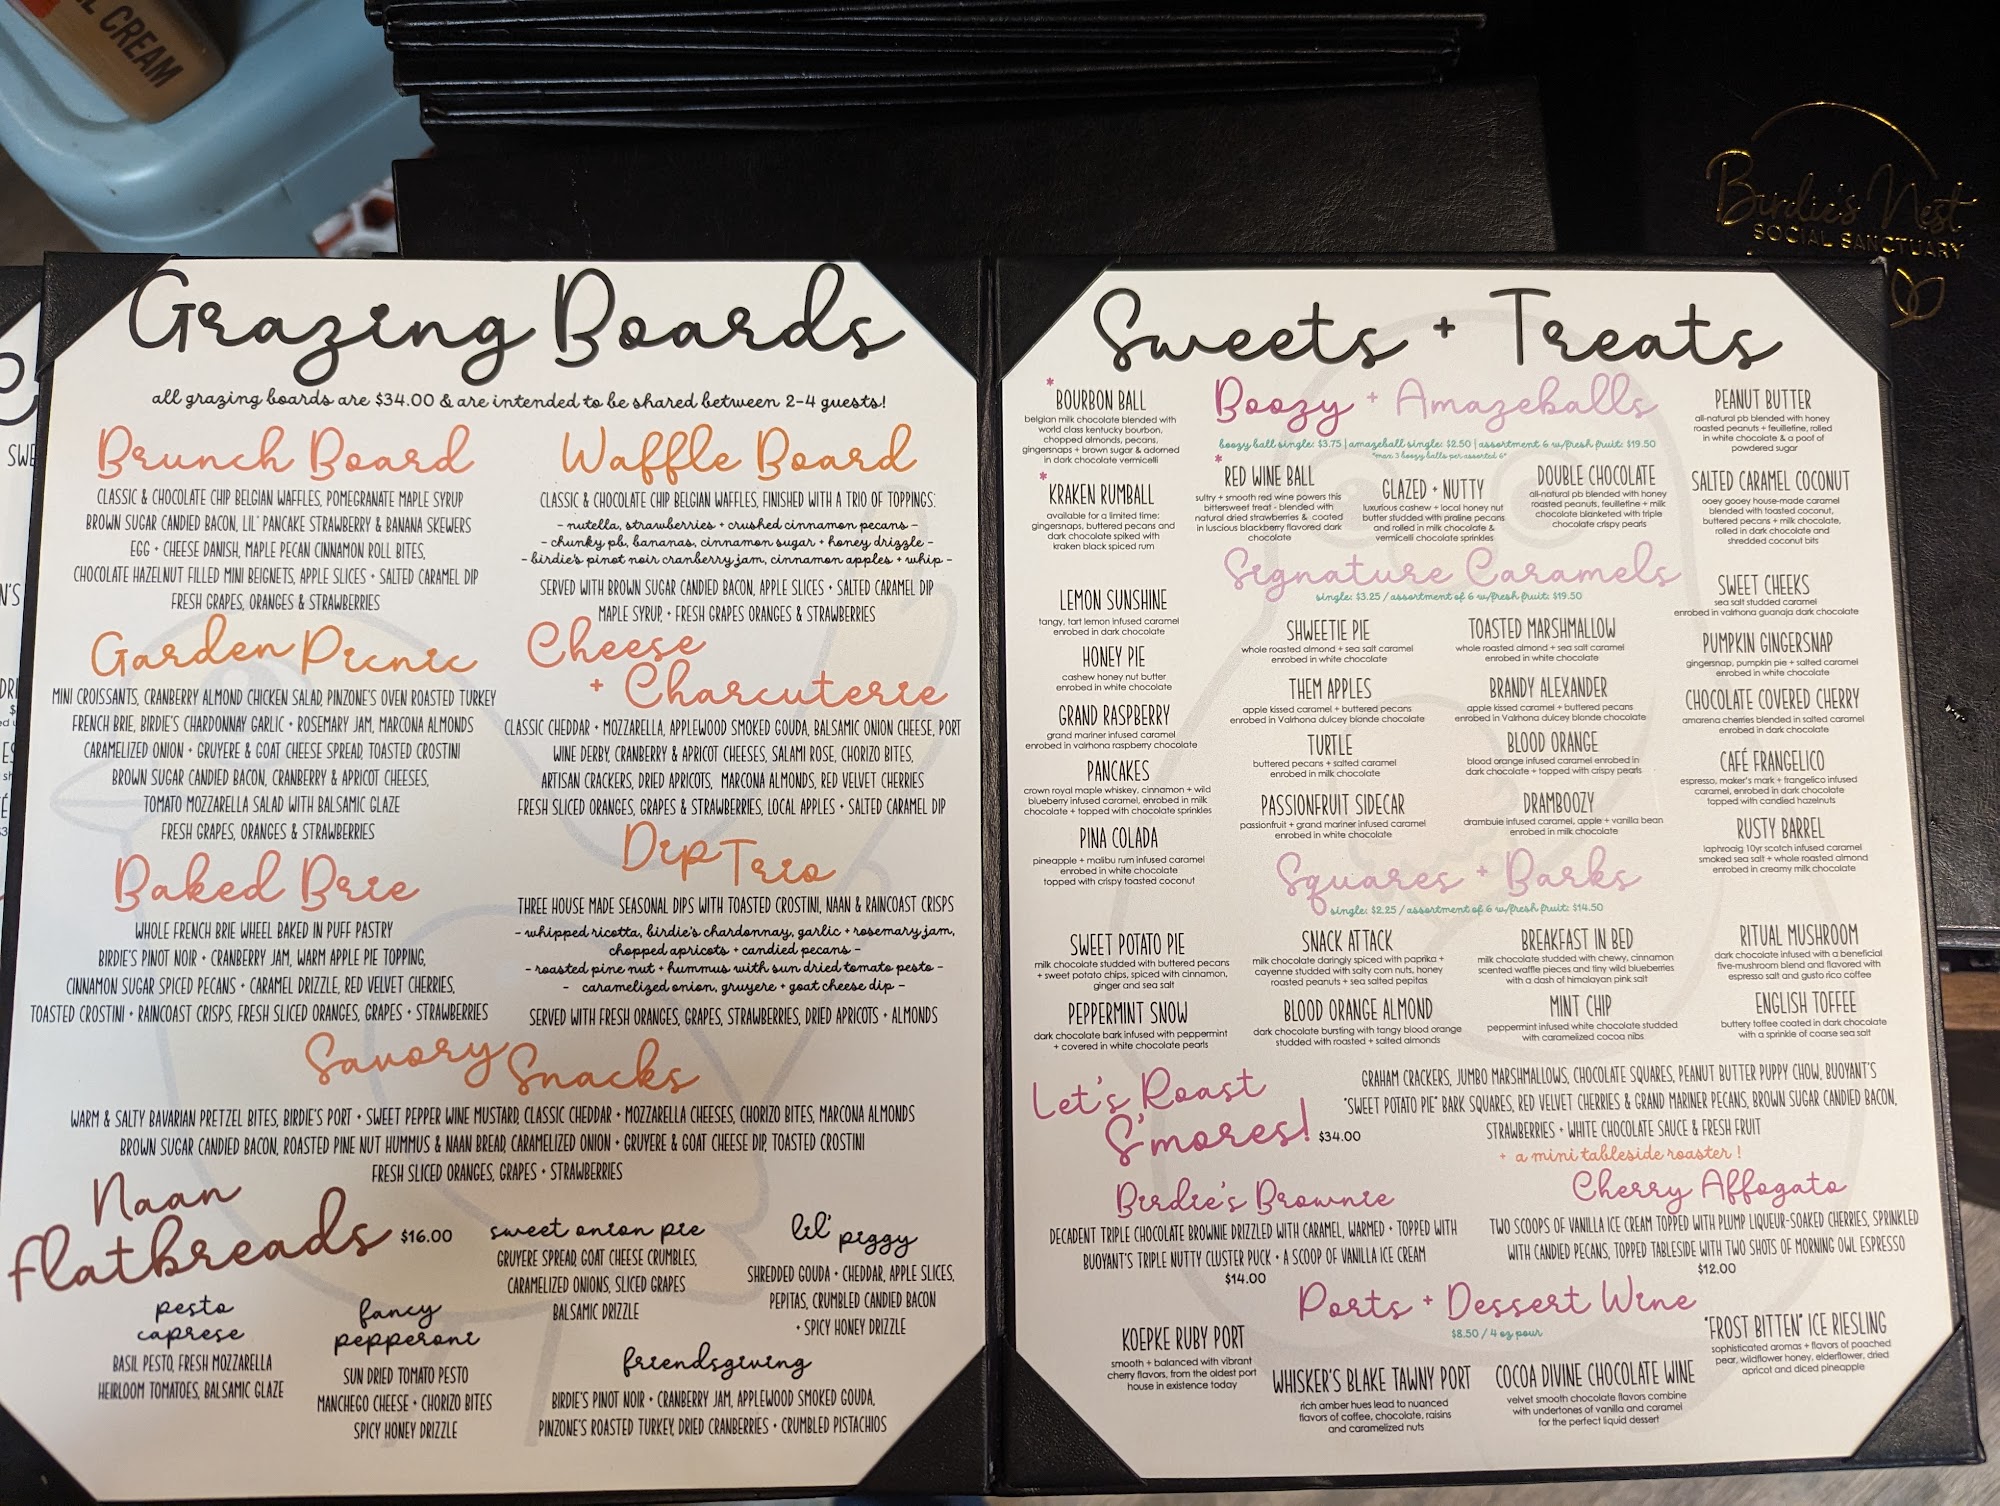 CREAM
Birdie's Nest
SOCIAL SANCTUARY
Grazing Boards
all grazing boards are $34.00 & are intended to be shared between 2-4 guests!
Brunch Board
CLASSIC & CHOCOLATE CHIP BELGIAN WAFFLES, POMEGRANATE MAPLE SYRUP
BROWN SUGAR CANDIED BACON, LIL' PANCAKE STRAWBERRY & BANANA SKEWERS
EGG + CHEESE DANISH, MAPLE PECAN CINNAMON ROLL BITES,
CHOCOLATE HAZELNUT FILLED MINI BEIGNETS, APPLE SLICES + SALTED CARAMEL DIP
FRESH GRAPES, ORANGES & STRAWBERRIES
Waffle Board
CLASSIC & CHOCOLATE CHIP BELGIAN WAFFLES, FINISHED WITH A TRIO OF TOPPINGS:
- nutella, strawberries + crushed cinnamon pecans -
- chunky pb, bananas, cinnamon sugar + honey drizzle -
- birdie's pinot noir cranberry jam, cinnamon apples + whip -
SERVED WITH BROWN SUGAR CANDIED BACON, APPLE SLICES + SALTED CARAMEL DIP
MAPLE SYRUP, + FRESH GRAPES ORANGES & STRAWBERRIES
Garden Picnic
MINI CROISSANTS, CRANBERRY ALMOND CHICKEN SALAD, PINZONE'S OVEN ROASTED TURKEY
FRENCH BRIE, BIRDIE'S CHARDONNAY GARLIC + ROSEMARY JAM, MARCONA ALMONDS
CARAMELIZED ONION + GRUYERE & GOAT CHEESE SPREAD, TOASTED CROSTINI
BROWN SUGAR CANDIED BACON, CRANBERRY & APRICOT CHEESES,
TOMATO MOZZARELLA SALAD WITH BALSAMIC GLAZE
FRESH GRAPES, ORANGES & STRAWBERRIES
Cheese
+ Charcuterie
CLASSIC CHEDDAR + MOZZARELLA, APPLEWOOD SMOKED GOUDA, BALSAMIC ONION CHEESE, PORT
WINE DERBY, CRANBERRY & APRICOT CHEESES, SALAMI ROSE, CHORIZO BITES,
ARTISAN CRACKERS, DRIED APRICOTS, MARCONA ALMONDS, RED VELVET CHERRIES
FRESH SLICED ORANGES, GRAPES & STRAWBERRIES, LOCAL APPLES + SALTED CARAMEL DIP
Baked Brie
WHOLE FRENCH BRIE WHEEL BAKED IN PUFF PASTRY
BIRDIE'S PINOT NOIR + CRANBERRY JAM, WARM APPLE PIE TOPPING,
CINNAMON SUGAR SPICED PECANS + CARAMEL DRIZZLE, RED VELVET CHERRIES,
TOASTED CROSTINI + RAINCOAST CRISPS, FRESH SLICED ORANGES, GRAPES + STRAWBERRIES
Dip Trio
THREE HOUSE MADE SEASONAL DIPS WITH TOASTED CROSTINI, NAAN & RAINCOAST CRISPS
- whipped ricotta, birdie's chardonnay, garlic + rosemary jam,
chopped apricots + candied pecans -
- roasted pine nut + hummus with sun dried tomato pesto -
- caramelized onion, gruyere + goat cheese dip -
SERVED WITH FRESH ORANGES, GRAPES, STRAWBERRIES, DRIED APRICOTS + ALMONDS
Savory Snacks
WARM & SALTY BAVARIAN PRETZEL BITES, BIRDIE'S PORT + SWEET PEPPER WINE MUSTARD, CLASSIC CHEDDAR + MOZZARELLA CHEESES, CHORIZO BITES, MARCONA ALMONDS
BROWN SUGAR CANDIED BACON, ROASTED PINE NUT HUMMUS & NAAN BREAD, CARAMELIZED ONION + GRUYERE & GOAT CHEESE DIP, TOASTED CROSTINI
FRESH SLICED ORANGES, GRAPES + STRAWBERRIES
Naan
Flatbreads $16.00
pesto
caprese
BASIL PESTO, FRESH MOZZARELLA
HEIRLOOM TOMATOES, BALSAMIC GLAZE
fancy
pepperoni
SUN DRIED TOMATO PESTO
MANCHEGO CHEESE + CHORIZO BITES
SPICY HONEY DRIZZLE
sweet onion pie
GRUYERE SPREAD, GOAT CHEESE CRUMBLES,
CARAMELIZED ONIONS, SLICED GRAPES
BALSAMIC DRIZZLE
lil' piggy
SHREDDED GOUDA + CHEDDAR, APPLE SLICES,
PEPITAS, CRUMBLED CANDIED BACON
+ SPICY HONEY DRIZZLE
friendsgiving
BIRDIE'S PINOT NOIR + CRANBERRY JAM, APPLEWOOD SMOKED GOUDA,
PINZONE'S ROASTED TURKEY, DRIED CRANBERRIES + CRUMBLED PISTACHIOS
Sweets + Treats
Boozy + Amazeballs
boozy ball single: $3.75 | amazeball single: $2.50 | assortment 6 w/fresh fruit: $19.50
*max 3 boozy balls per assorted 6*
* BOURBON BALL
belgian milk chocolate blended with
world class kentucky bourbon,
chopped almonds, pecans,
gingersnaps + brown sugar & adorned
in dark chocolate vermicelli
* KRAKEN RUMBALL
available for a limited time:
gingersnaps, buttered pecans and
dark chocolate spiked with
kraken black spiced rum
* RED WINE BALL
sultry + smooth red wine powers this
bittersweet treat - blended with
natural dried strawberries & coated
in luscious blackberry flavored dark
chocolate
GLAZED + NUTTY
luxurious cashew + local honey nut
butter studded with praline pecans
and rolled in milk chocolate &
vermicelli chocolate sprinkles
DOUBLE CHOCOLATE
all-natural pb blended with honey
roasted peanuts, feuilletine + milk
chocolate blanketed with triple
chocolate crispy pearls
PEANUT BUTTER
all-natural pb blended with honey
roasted peanuts + feuilletine, rolled
in white chocolate & a poof of
powdered sugar
SALTED CARAMEL COCONUT
ooey gooey house-made caramel
blended with toasted coconut,
buttered pecans + milk chocolate,
rolled in dark chocolate and
shredded coconut bits
Signature Caramels
single: $3.25 / assortment of 6 w/fresh fruit: $19.50
LEMON SUNSHINE
tangy, tart lemon infused caramel
enrobed in dark chocolate
HONEY PIE
cashew honey nut butter
enrobed in white chocolate
GRAND RASPBERRY
grand mariner infused caramel
enrobed in valrhona raspberry chocolate
PANCAKES
crown royal maple whiskey, cinnamon + wild
blueberry infused caramel, enrobed in milk
chocolate + topped with chocolate sprinkles
PINA COLADA
pineapple + malibu rum infused caramel
enrobed in white chocolate
topped with crispy toasted coconut
SHWEETIE PIE
whole roasted almond + sea salt caramel
enrobed in white chocolate
THEM APPLES
apple kissed caramel + buttered pecans
enrobed in Valrhona dulcey blonde chocolate
TURTLE
buttered pecans + salted caramel
enrobed in milk chocolate
PASSIONFRUIT SIDECAR
passionfruit + grand mariner infused caramel
enrobed in white chocolate
TOASTED MARSHMALLOW
whole roasted almond + sea salt caramel
enrobed in white chocolate
BRANDY ALEXANDER
apple kissed caramel + buttered pecans
enrobed in Valrhona dulcey blonde chocolate
BLOOD ORANGE
blood orange infused caramel enrobed in
dark chocolate + topped with crispy pearls
DRAMBOOZY
drambuie infused caramel, apple + vanilla bean
enrobed in milk chocolate
SWEET CHEEKS
sea salt studded caramel
enrobed in valrhona guanaja dark chocolate
PUMPKIN GINGERSNAP
gingersnap, pumpkin pie + salted caramel
enrobed in white chocolate
CHOCOLATE COVERED CHERRY
amarena cherries blended in salted caramel
enrobed in dark chocolate
CAFÉ FRANGELICO
espresso, maker's mark + frangelico infused
caramel, enrobed in dark chocolate
topped with candied hazelnuts
RUSTY BARREL
laphroaig 10yr scotch infused caramel
smoked sea salt + whole roasted almond
enrobed in creamy milk chocolate
Squares + Barks
single: $2.25 / assortment of 6 w/fresh fruit: $14.50
SWEET POTATO PIE
milk chocolate studded with buttered pecans
+ sweet potato chips, spiced with cinnamon,
ginger and sea salt
SNACK ATTACK
milk chocolate daringly spiced with paprika +
cayenne studded with salty corn nuts, honey
roasted peanuts + sea salted pepitas
BREAKFAST IN BED
milk chocolate studded with chewy, cinnamon
scented waffle pieces and tiny wild blueberries
with a dash of himalayan pink salt
RITUAL MUSHROOM
dark chocolate infused with a beneficial
five-mushroom blend and flavored with
espresso salt and gusto rico coffee
PEPPERMINT SNOW
dark chocolate bark infused with peppermint
+ covered in white chocolate pearls
BLOOD ORANGE ALMOND
dark chocolate bursting with tangy blood orange
studded with roasted + salted almonds
MINT CHIP
peppermint infused white chocolate studded
with caramelized cocoa nibs
ENGLISH TOFFEE
buttery toffee coated in dark chocolate
with a sprinkle of coarse sea salt
Let's Roast
S'mores! $34.00
GRAHAM CRACKERS, JUMBO MARSHMALLOWS, CHOCOLATE SQUARES, PEANUT BUTTER PUPPY CHOW, BUOYANT'S
"SWEET POTATO PIE" BARK SQUARES, RED VELVET CHERRIES & GRAND MARINER PECANS, BROWN SUGAR CANDIED BACON,
STRAWBERRIES + WHITE CHOCOLATE SAUCE & FRESH FRUIT
+ a mini tableside roaster !
Birdie's Brownie
DECADENT TRIPLE CHOCOLATE BROWNIE DRIZZLED WITH CARAMEL, WARMED + TOPPED WITH
BUOYANT'S TRIPLE NUTTY CLUSTER PUCK + A SCOOP OF VANILLA ICE CREAM
$14.00
Cherry Affogato
TWO SCOOPS OF VANILLA ICE CREAM TOPPED WITH PLUMP LIQUEUR-SOAKED CHERRIES, SPRINKLED
WITH CANDIED PECANS, TOPPED TABLESIDE WITH TWO SHOTS OF MORNING OWL ESPRESSO
$12.00
Ports + Dessert Wine
$8.50 / 4 oz pour
KOEPKE RUBY PORT
smooth + balanced with vibrant
cherry flavors, from the oldest port
house in existence today
WHISKER'S BLAKE TAWNY PORT
rich amber hues lead to nuanced
flavors of coffee, chocolate, raisins
and caramelized nuts
COCOA DIVINE CHOCOLATE WINE
velvet smooth chocolate flavors combine
with undertones of vanilla and caramel
for the perfect liquid dessert
"FROST BITTEN" ICE RIESLING
sophisticated aromas + flavors of poached
pear, wildflower honey, elderflower, dried
apricot and diced pineapple